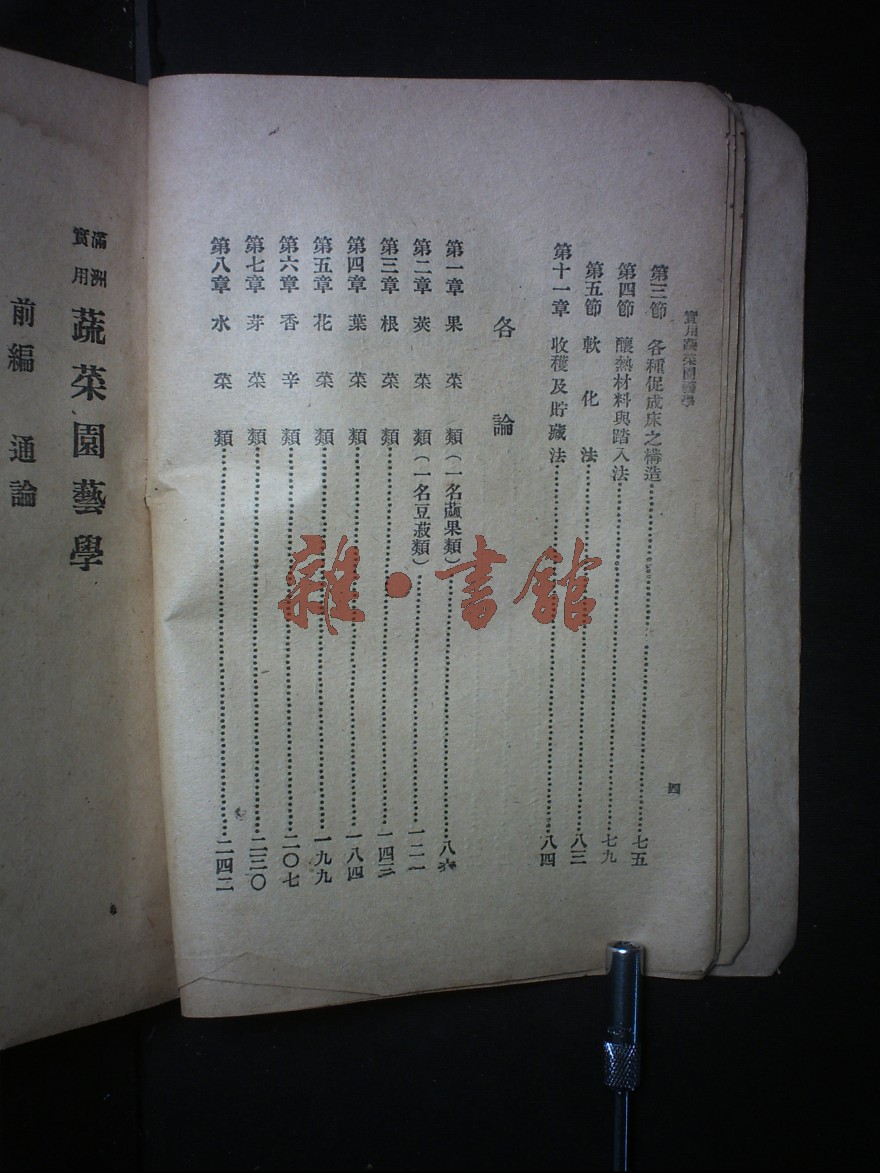 實用蔬菜園藝學
四
第三節　各種促成床之構造……七五
第四節　釀熱材料與踏入法……七九
第五節　軟化法……八三
第十一章　收穫及貯藏法……八四
各論
第一章　果菜類（一名蓏果類）……八六
第二章　莢菜類（一名豆菽類）……一二一
第三章　根菜類……一四三
第四章　葉菜類……一八四
第五章　花菜類……一九九
第六章　香辛類……二〇七
第七章　芽菜類……二三〇
第八章　水菜類……二四二
滿洲
實用
蔬菜園藝學
前編　通論
雜·書館